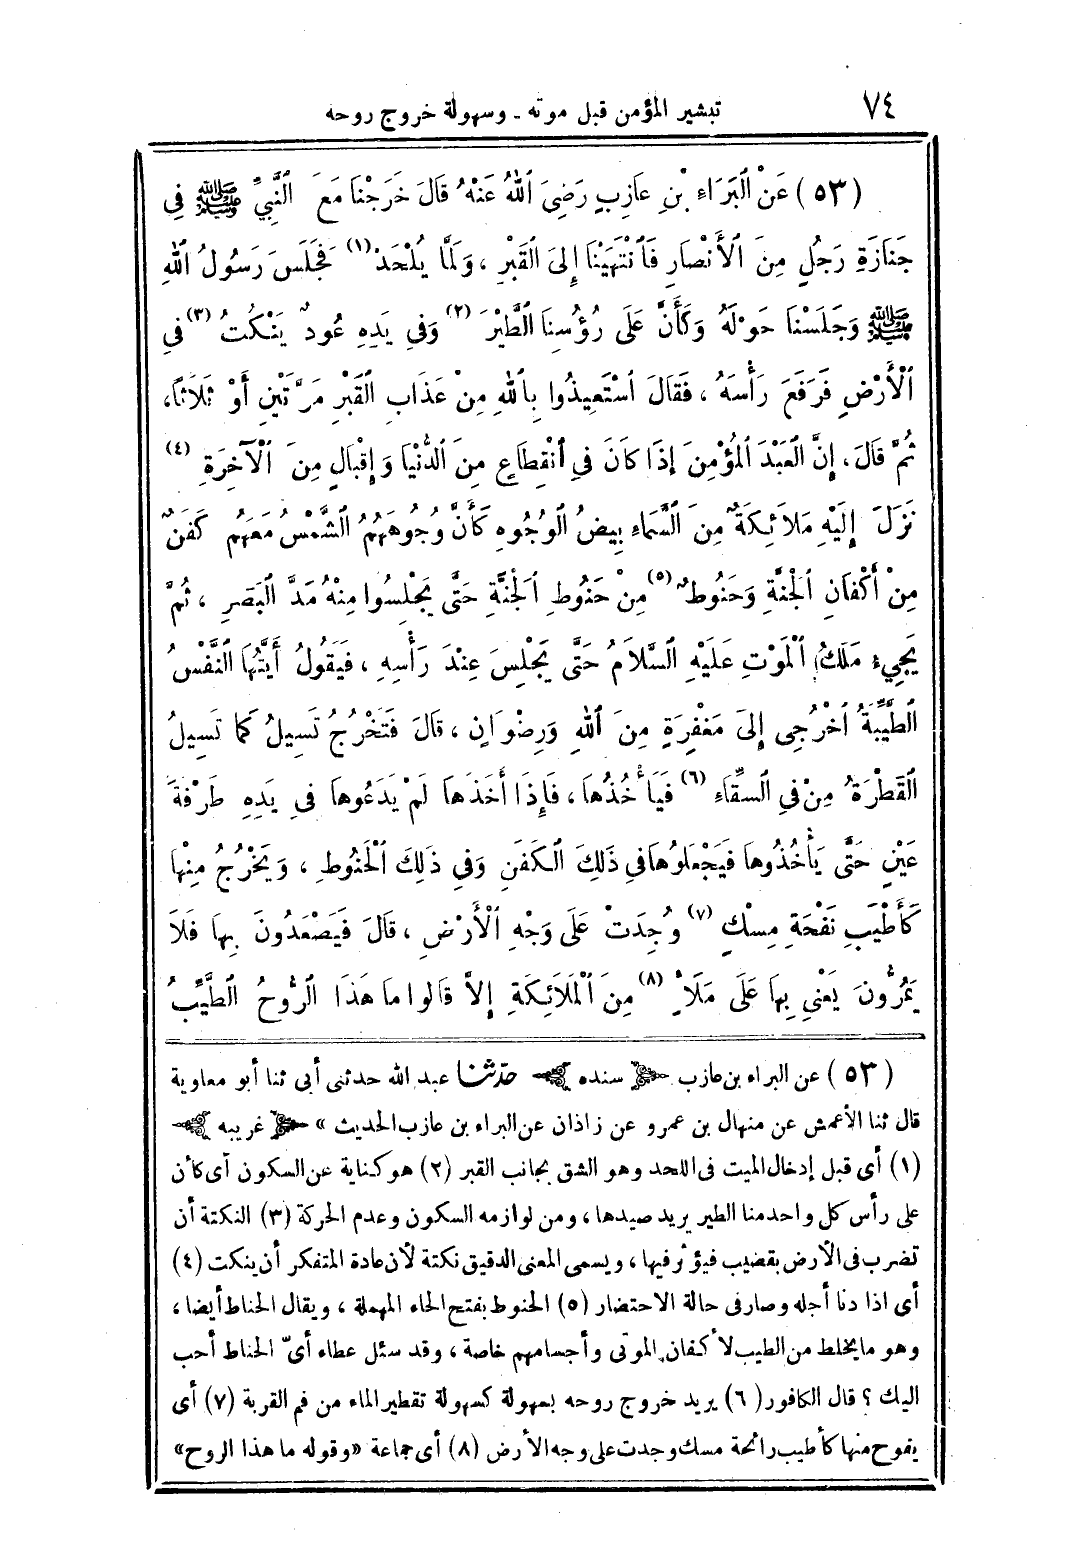 ٧٤ تبشير المؤمن قبل موته - وسهولة خروج روحه
(٥٣) عَنْ الْبَرَاءِ بْنِ عَازِبٍ رَضِيَ اللهُ عَنْهُ قَالَ خَرَجْنَا مَعَ النَّبِيِّ ﷺ فِي
جَنَازَةِ رَجُلٍ مِنَ الْأَنْصَارِ فَانْتَهَيْنَا إِلَى الْقَبْرِ ، وَلَمَّا يُلْحَدْ (١) فَجَلَسَ رَسُولُ اللهِ
ﷺ وَجَلَسْنَا حَوْلَهُ وَكَأَنَّ عَلَى رُؤُسِنَا الطَّيْرَ (٢) وَفِي يَدِهِ عُودٌ يَنْكُتُ (٣) فِي
الْأَرْضِ فَرَفَعَ رَأْسَهُ ، فَقَالَ اسْتَعِيذُوا بِاللهِ مِنْ عَذَابِ الْقَبْرِ مَرَّتَيْنِ أَوْ ثَلَاثًا،
ثُمَّ قَالَ، إِنَّ الْعَبْدَ الْمُؤْمِنَ إِذَا كَانَ فِي انْقِطَاعٍ مِنَ الدُّنْيَا وَإِقْبَالٍ مِنَ الْآخِرَةِ (٤)
نَزَلَ إِلَيْهِ مَلَائِكَةٌ مِنَ السَّمَاءِ بِيضُ الْوُجُوهِ كَأَنَّ وُجُوهَهُمُ الشَّمْسُ مَعَهُم كَفَنٌ
مِنْ أَكْفَانِ الْجَنَّةِ وَحَنُوطٌ (٥) مِنْ حَنُوطِ الْجَنَّةِ حَتَّى يَجْلِسُوا مِنْهُ مَدَّ الْبَصَرِ ، ثُمَّ
يَجِيءُ مَلَكُ الْمَوْتِ عَلَيْهِ السَّلَامُ حَتَّى يَجْلِسَ عِنْدَ رَأْسِهِ ، فَيَقُولُ أَيَّتُهَا النَّفْسُ
الطَّيِّبَةُ اخْرُجِي إِلَى مَغْفِرَةٍ مِنَ اللهِ وَرِضْوَانٍ ، قَالَ فَتَخْرُجُ تَسِيلُ كَمَا تَسِيلُ
الْقَطْرَةُ مِنْ فِي السِّقَاءِ (٦) فَيَأْخُذُهَا، فَإِذَا أَخَذَهَا لَمْ يَدَعُوهَا فِي يَدِهِ طَرْفَةَ
عَيْنٍ حَتَّى يَأْخُذُوهَا فَيَجْعَلُوهَا فِي ذَلِكَ الْكَفَنِ وَفِي ذَلِكَ الْحَنُوطِ ، وَيَخْرُجُ مِنْهَا
كَأَطْيَبِ نَفْحَةِ مِسْكٍ (٧) وُجِدَتْ عَلَى وَجْهِ الْأَرْضِ ، قَالَ فَيَصْعَدُونَ بِهَا فَلَا
يَمُرُّونَ يَعْنِي بِهَا عَلَى مَلَأٍ (٨) مِنَ الْمَلَائِكَةِ إِلَّا قَالُوا مَا هَذَا الرُّوحُ الطَّيِّبُ
(٥٣) عن البراء بن عازب سنده حدثنا عبد الله حدثني أبي ثنا أبو معاوية
قال ثنا الأعمش عن منهال بن عمرو عن زاذان عن البراء بن عازب الحديث » غريبه
(١) أي قبل إدخال الميت في اللحد وهو الشق بجانب القبر (٢) هو كناية عن السكون أي كأن
على رأس كل واحد منا الطير يريد صيدها ، ومن لوازمه السكون وعدم الحركة (٣) النكتة أن
تضرب في الأرض بقضيب فيؤثر فيها ، ويسمى المعنى الدقيق نكتة لأن عادة المتفكر أن ينكت (٤)
أي اذا دنا أجله وصار في حالة الاحتضار (٥) الحنوط بفتح الحاء المهملة ، ويقال الحناط أيضا ،
وهو ما يخلط من الطيب لأكفان الموتى وأجسامهم خاصة ، وقد سئل عطاء أيّ الحناط أحب
اليك ؟ قال الكافور (٦) يريد خروج روحه بسهولة كسهولة تقطير الماء من فم القربة (٧) أي
يفوح منها كأطيب رائحة مسك وجدت على وجه الأرض (٨) أي جماعة «وقوله ما هذا الروح»